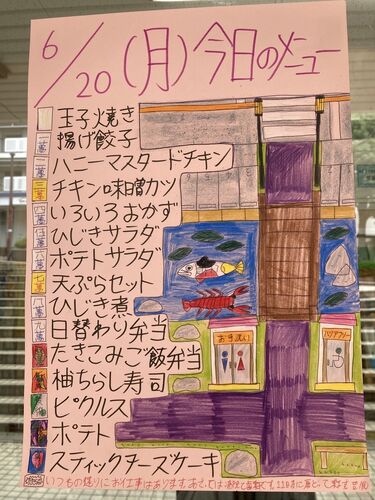 6/20(月)今日のメニュー
玉子焼き
揚げ餃子
ハニーマスタードチキン
チキン味噌カツ
いろいろおかず
ひじきサラダ
ポテトサラダ
天ぷらセット
ひじき煮
日替わり弁当
たきこみご飯弁当
柚ちらし寿司
ピクルス
ポテト
スティックチーズケーキ
お手洗い
バリアフリー
いつもの通りにお仕事はあります